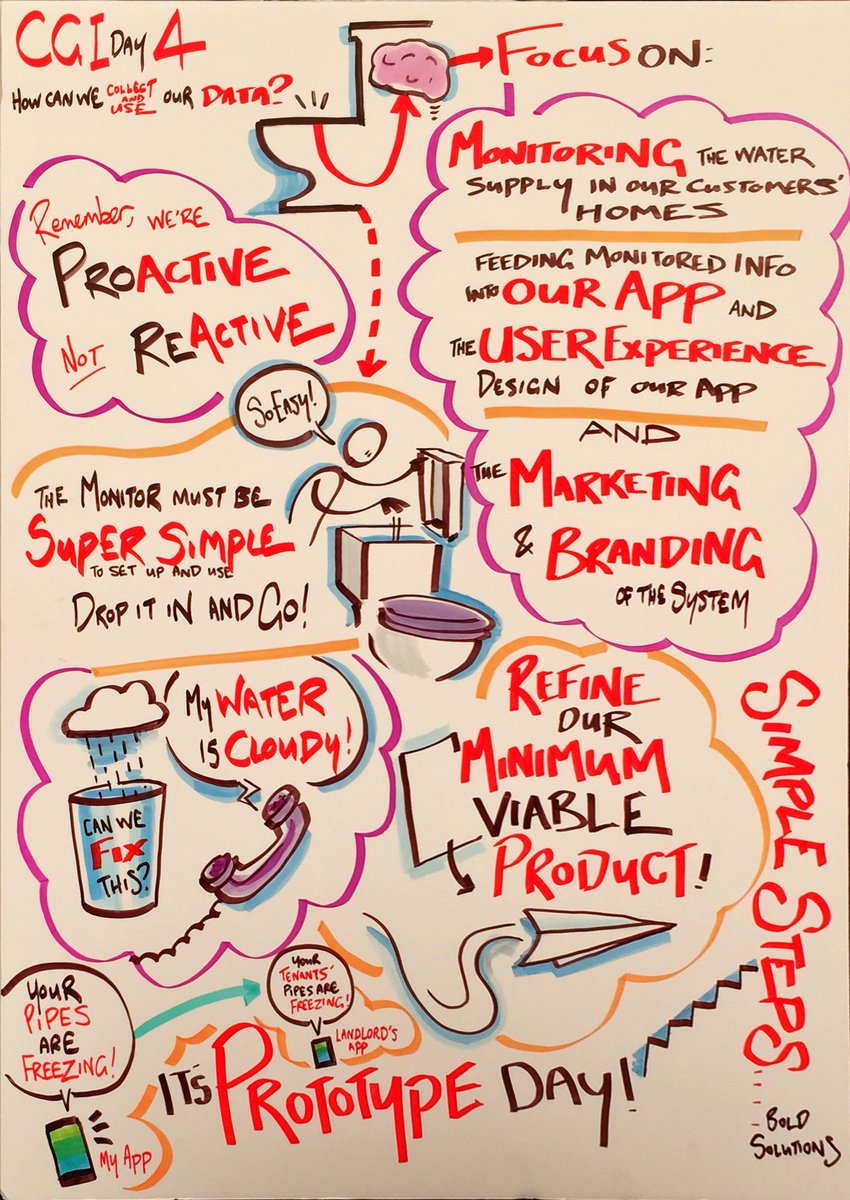 CGI DAY 4
HOW CAN WE COLLECT AND USE OUR DATA?
FOCUS ON:
MONITORING THE WATER
SUPPLY IN OUR CUSTOMERS'
HOMES
FEEDING MONITORED INFO
INTO OUR APP AND
THE USER EXPERIENCE
DESIGN OF OUR APP
AND
THE MARKETING
& BRANDING
OF THE SYSTEM
Remember, WE'RE
PROACTIVE
NOT REACTIVE
SO EASY!
THE MONITOR MUST BE
SUPER SIMPLE
TO SET UP AND USE
DROP IT IN AND GO!
MY WATER
IS CLOUDY!
CAN WE
FIX
THIS?
REFINE
OUR
MINIMUM
VIABLE
PRODUCT!
SIMPLE STEPS....
BOLD
SOLUTIONS
YOUR
PIPES
ARE
FREEZING!
MY APP
YOUR
TENANTS'
PIPES ARE
FREEZING!
LANDLORD'S
APP
IT'S PROTOTYPE DAY!